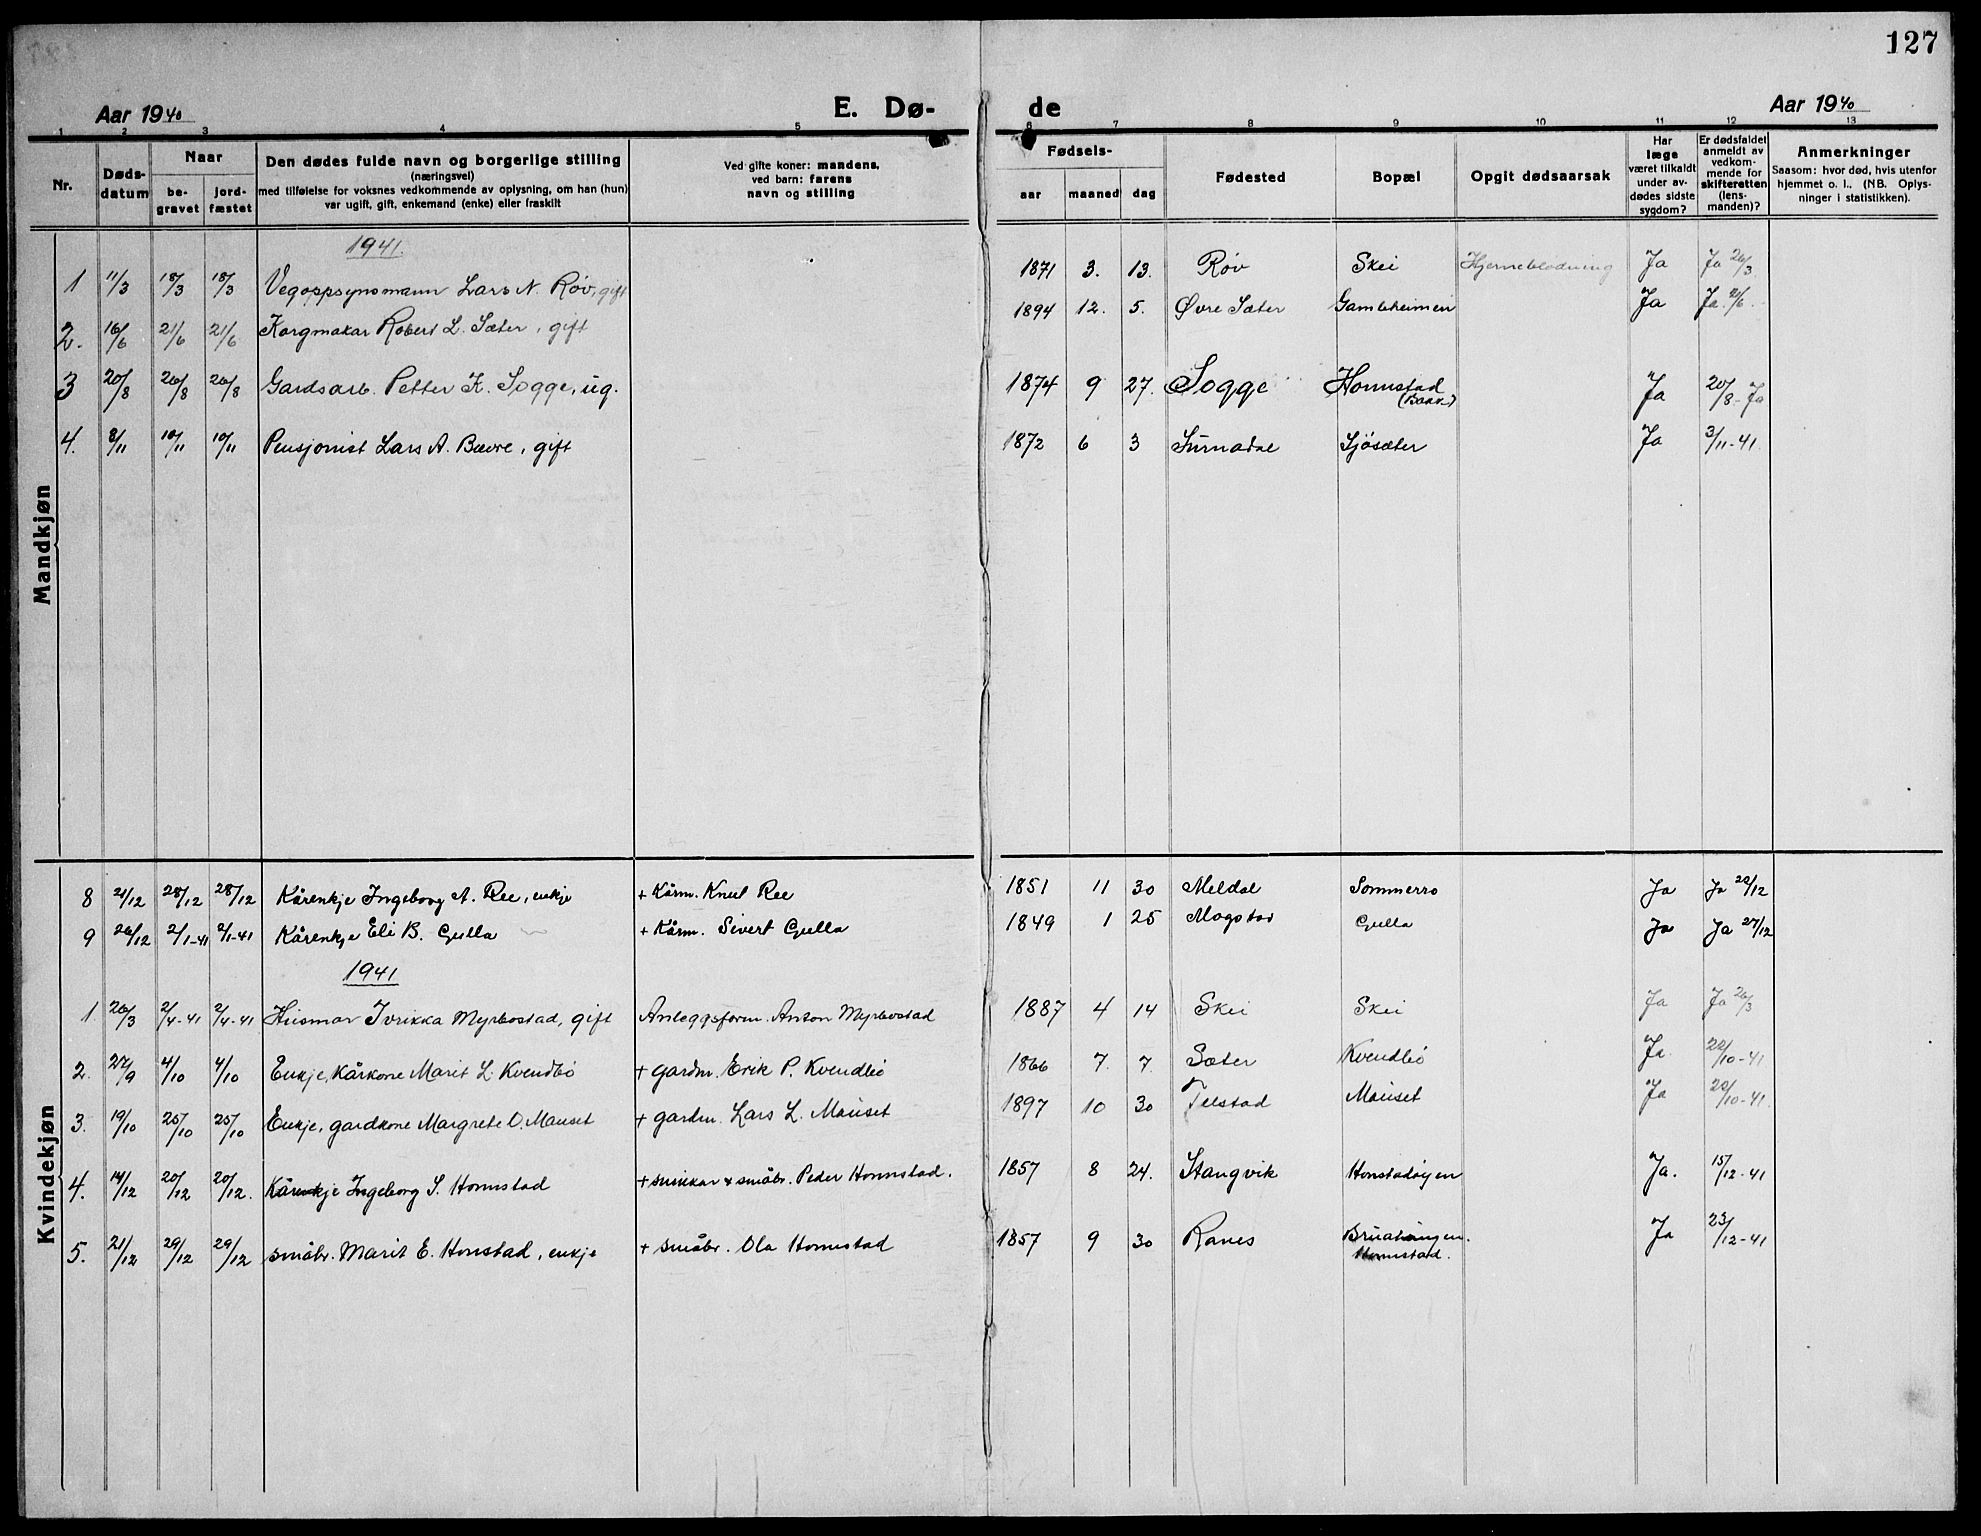 127
Aar 1940 E. Dø- de Aar 1940
1 2 3 4 5 6 7 8 9 10 11 12 13
Nr.
Døds-
datum
Naar
be-
gravet
jord-
fæstet
Den dødes fulde navn og borgerlige stilling
(næringsvei)
med tilføielse for voksnes vedkommende av oplysning, om han (hun)
var ugift, gift, enkemand (enke) eller fraskilt
Ved gifte koner: mandens,
ved barn: farens
navn og stilling
Fødsels-
aar maaned dag
Fødested
Bopæl
Opgit dødsaarsak
Har
læge
været tilkaldt
under av-
dødes sidste
sygdom?
Er dødsfaldet
anmeldt av
vedkom-
mende for
skifteretten
(lens-
manden)?
Anmerkninger
Saasom: hvor død, hvis utenfor
hjemmet o. l.. (NB. Oplys-
ninger i statistikken).
Mandkjøn
1941.
1 11/3 18/3 18/3 Vegoppsynsmann Lars N. Røv, gift 1871 3. 13. Røv Skei Hjerneblødning Ja Ja 26/3
2. 16/6 21/6 21/6 Korgmakar Robert L. Sæter, gift 1894 12. 5. Øvre Sæter Gambleheimen Ja Ja 21/6.
3 20/8 26/8 26/8 Gardsarb. Petter K. Sogge, ug. 1874 9 27. Sogge Honnstad Ja 20/8 - Ja
4. 8/11 10/11 10/11 Pensjonist Lars A. Bævre, gift 1872 6 3 Surnadal Sjøsæter Ja 3/11-41.
Kvindekjøn
8 21/12 28/12 28/12 Kårenkje Ingeborg A. Ree, enkje + Kårm. Knut Ree 1851 11 30 Meldal Sommerro Ja Ja 20/12
9 26/12 2/1-41 2/1-41 Kårenkje Eli B. Gulla + Kårm. Sivert Gulla 1849 1 25 Mogstad Gulla Ja Ja 27/12
1941
1 26/3 2/4-41 2/4-41 Husmor Ivrikka Myrbostad, gift Anleggsform. Anton Myrbostad 1887 4 14 Skei Skei Ja Ja 26/3
2. 27/9 4/10 4/10 Enkje, Kårkone Marit L. Kvendbø + gardm. Erik P. Kvendbø 1866 7. 7. Sæter Kvendbø Ja 22/10-41
3. 19/10 25/10 25/10 Enkje, gardkone Margrete O. Mauset + gardm. Lars L. Mauset 1897 10 30 Telstad Mauset Ja 20/10-41.
4. 14/12 20/12 20/12. Kårenkje Ingeborg S. Honnstad + snikkar & småbr. Peder Honnstad. 1857 8 24. Stangvik Honstadøyen Ja. 15/12-41
5. 21/12 29/12 29/12 småbr. Marit E. Honstad, enkje + småbr. Ola Honnstad 1857 9 30 Ranes Honnstad. Ja 23/12-41